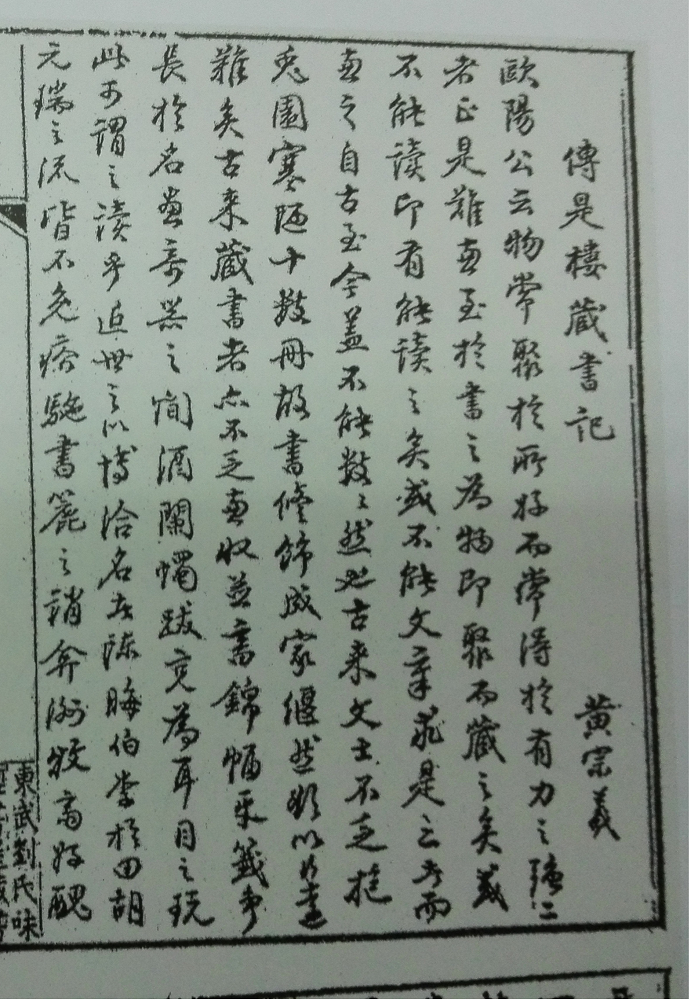 傳是樓藏書記
黃宗羲
歐陽公云物常聚於所好而常得於有力之彊二
者正是難兼至於書之為物即聚而藏之矣或
不能讀即有能讀之矣或不能文章求是三者而
兼之自古至今蓋不能數數然也古來文士不乏抱
兔園寒陋十數冊故書修飾成家偃然以
難矣古來藏書者亦不乏兼收並畜錦幅牙籤爭
長於名畫奇器之間酒闌燭跋充為耳目之玩
此可謂之讀乎近世之以博洽名者陳晦伯李於田胡
元瑞之流皆不免疥駝書簏之誚弇州牧齋好醜
東武劉氏味